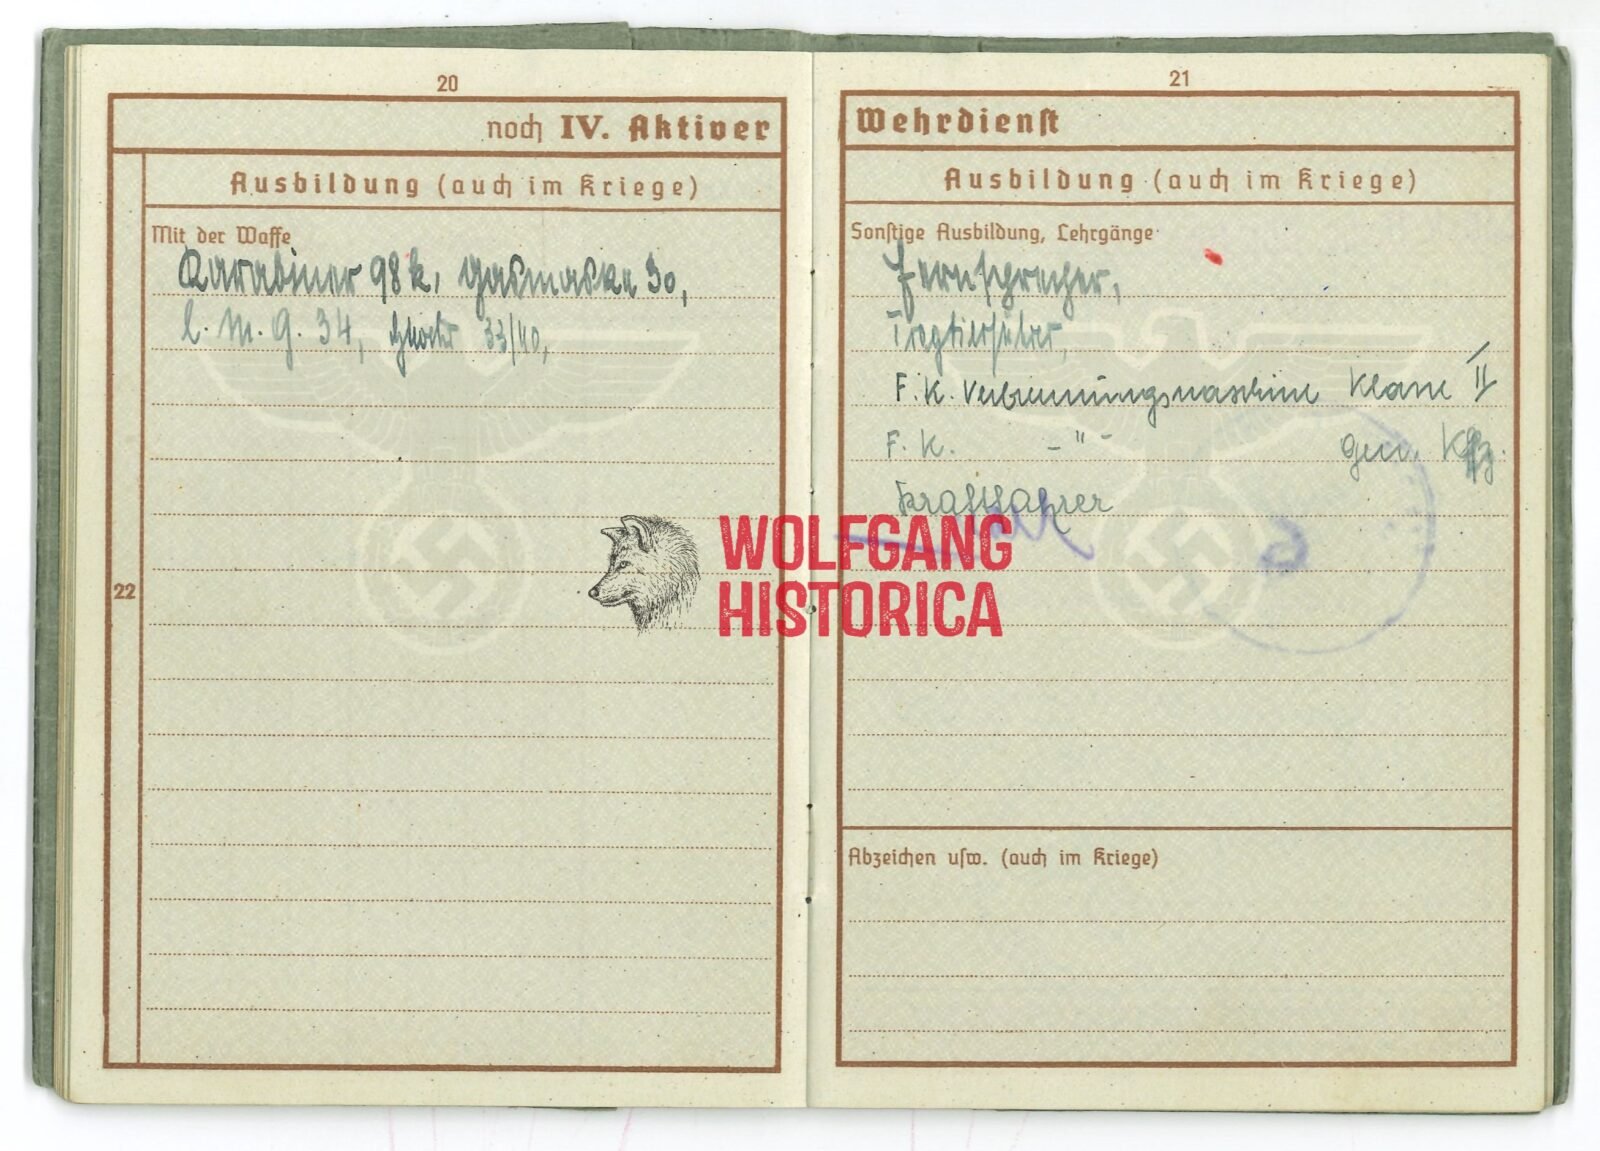 20
noch IV. Aktiver
Ausbildung (auch im Kriege)
Mit der Waffe
Karabiner 98k, Gasmaske 30,
l. M. G. 34, 33/40,
22
21
Wehrdienst
Ausbildung (auch im Kriege)
Sonstige Ausbildung, Lehrgänge
Fernsprecher,
Tragtierführer,
F. K. Verbrennungsmaschine Klasse II
F. K. - " - gen. Kfz.
Kraftfahrer
6
Abzeichen usw. (auch im Kriege)
WOLFGANG
HISTORICA